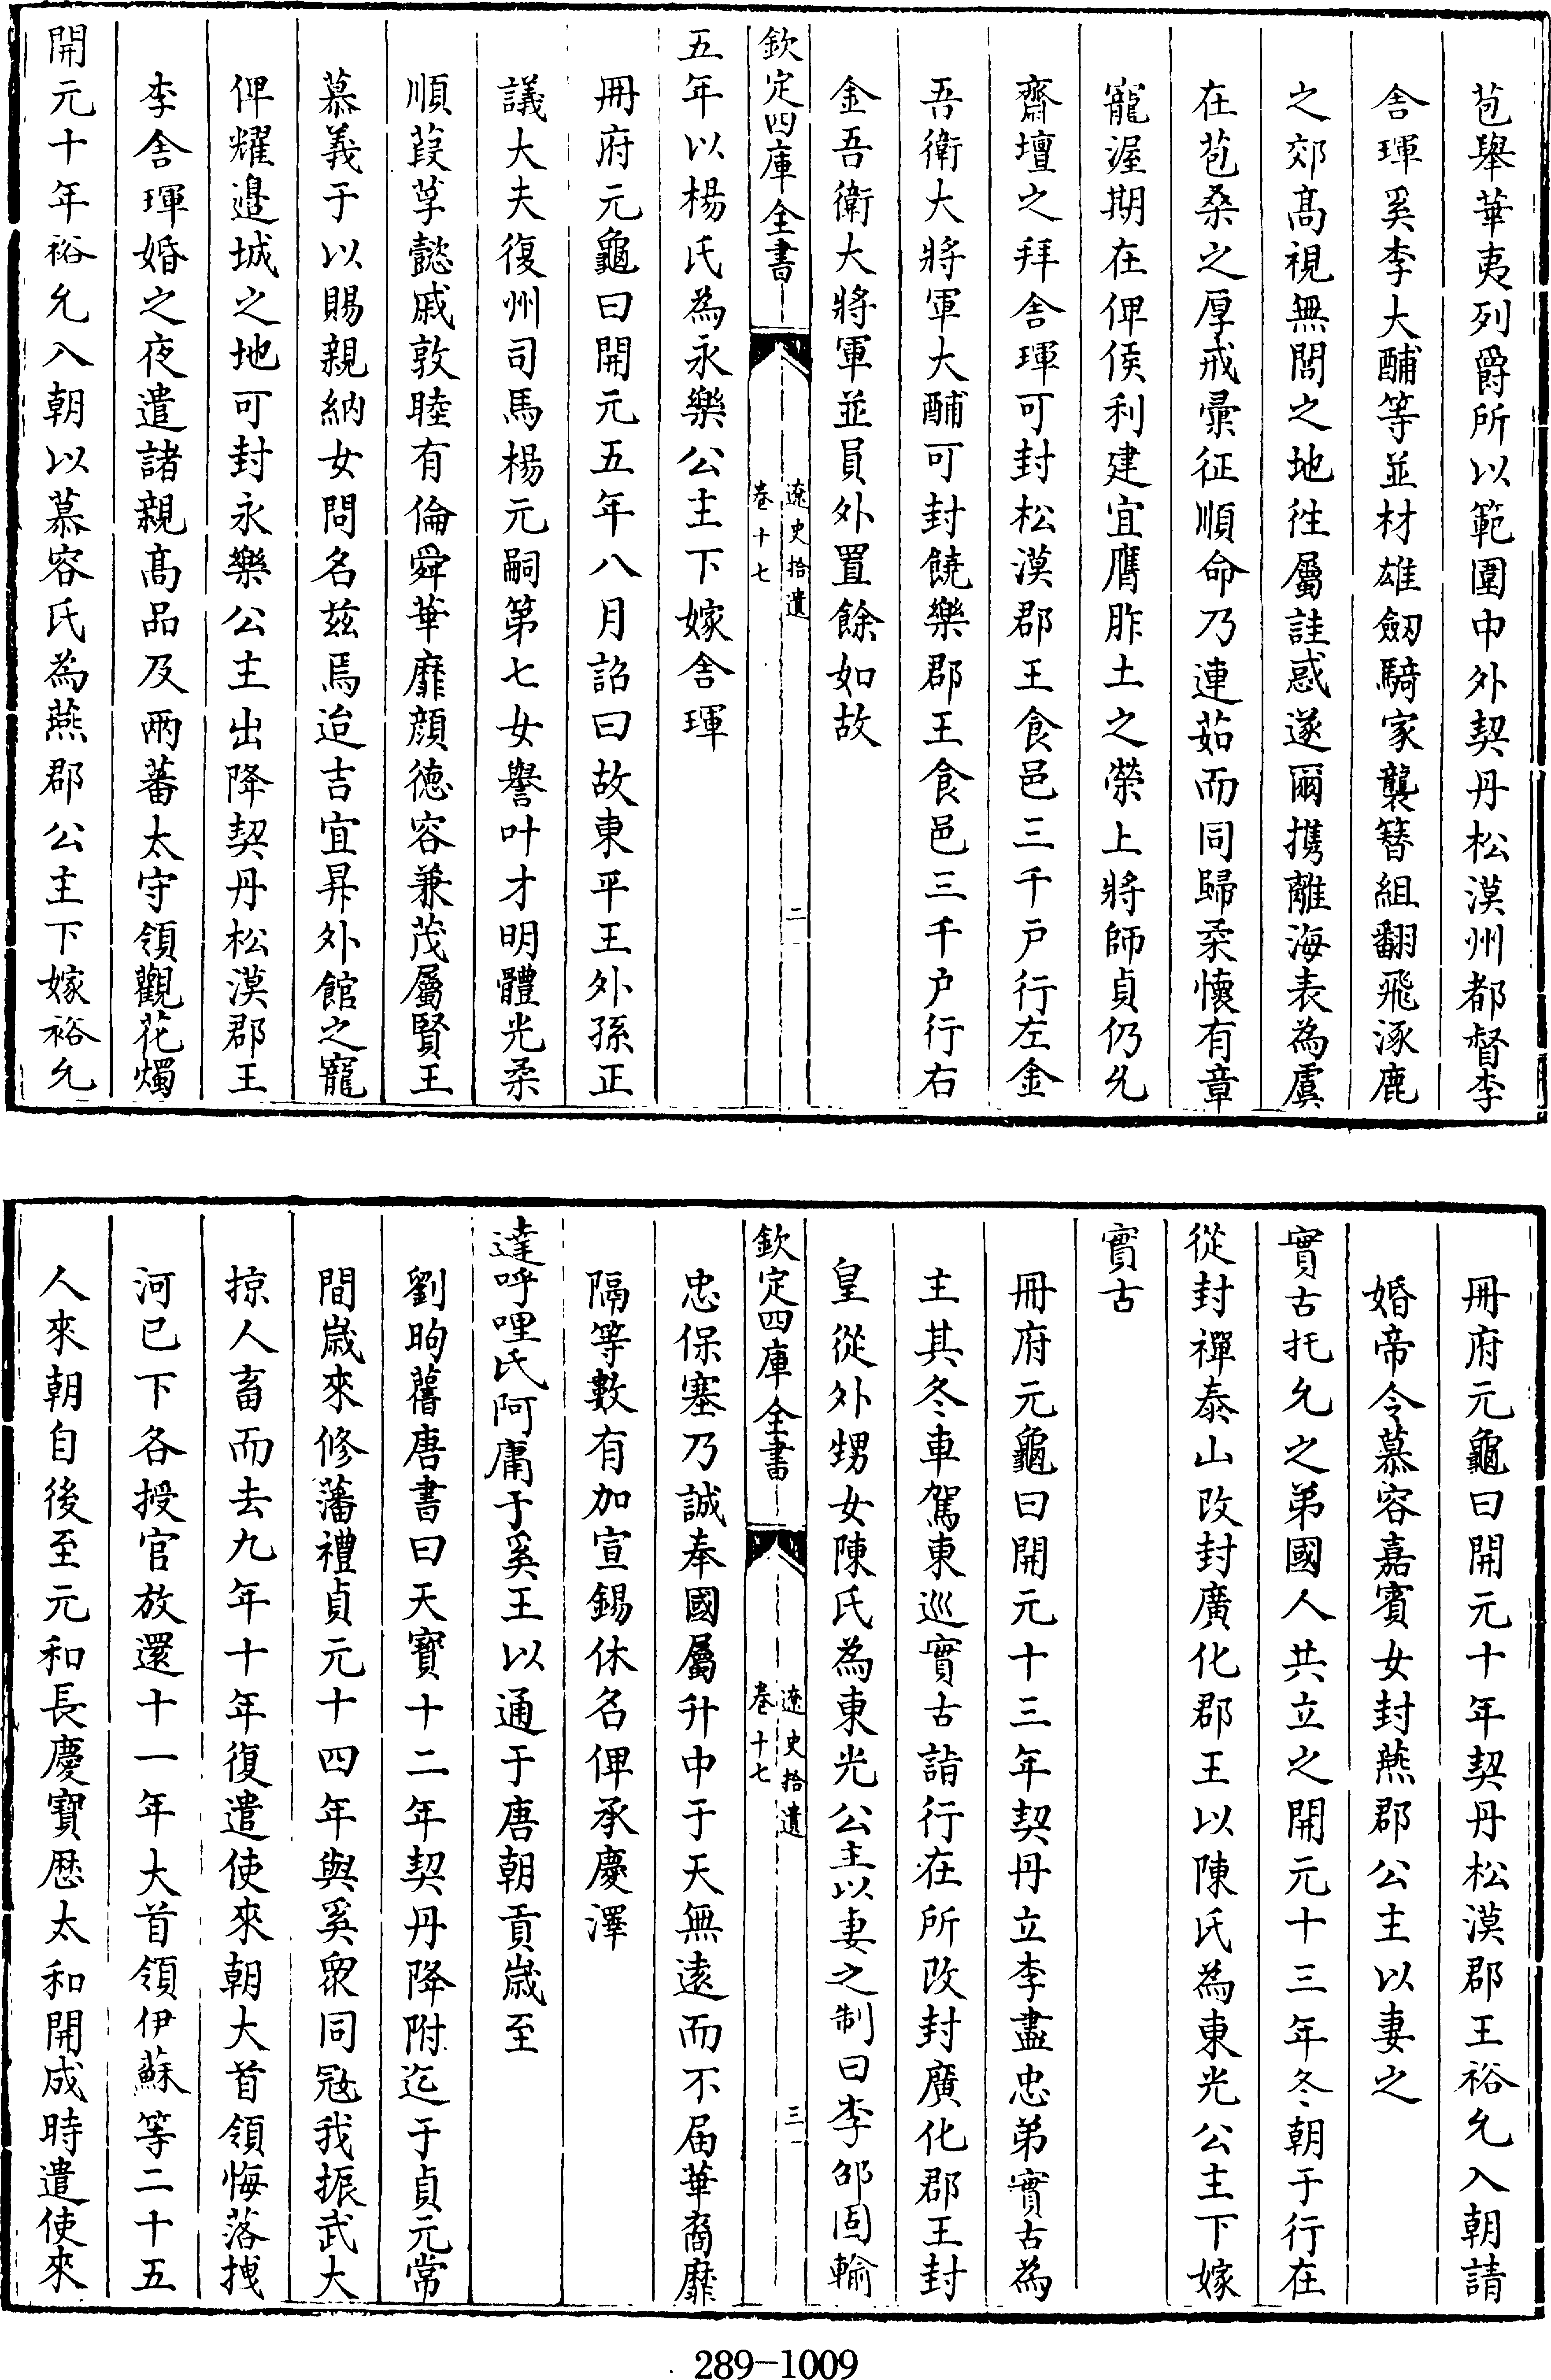 苞舉華夷列爵所以範圍中外契丹松漠州都督李
舎琿奚李大酺等並材雄劒騎家襲簪組翻飛涿鹿
之郊髙視無閭之地徃屬詿惑遂爾攜離海表為虞
在苞桑之厚戒彚征順命乃連茹而同歸柔懷有章
寵渥期在俾侯利建宜膺胙土之榮上將師貞仍允
齋壇之拜舎琿可封松漠郡王食邑三千户行左金
吾衛大將軍大酺可封饒樂郡王食邑三千户行右
金吾衛大將軍並員外置餘如故
欽定四庫全書
遼史拾遺
卷十七
二
五年以楊氏為永樂公主下嫁舎琿
冊府元龜曰開元五年八月詔曰故東平王外孫正
議大夫復州司馬楊元嗣第七女譽叶才明體光柔
順葭莩懿戚敦睦有倫舜華靡顔徳容兼茂屬賢王
慕義于以賜親納女問名茲焉迨吉宜昇外館之寵
俾耀邉城之地可封永樂公主出降契丹松漠郡王
李舎琿婚之夜遣諸親髙品及兩蕃太守領觀花燭
開元十年裕允入朝以慕容氏為燕郡公主下嫁裕允
冊府元龜曰開元十年契丹松漠郡王裕允入朝請
婚帝令慕容嘉賓女封燕郡公主以妻之
實古托允之弟國人共立之開元十三年冬朝于行在
從封禪泰山改封廣化郡王以陳氏為東光公主下嫁
實古
冊府元龜曰開元十三年契丹立李盡忠弟實古為
主其冬車駕東巡實古詣行在所改封廣化郡王封
皇從外甥女陳氏為東光公主以妻之制曰李邵固輸
欽定四庫全書
遼史拾遺
卷十七
三
忠保塞乃誠奉國屬升中于天無逺而不届華裔靡
隔等數有加宣錫休名俾承慶澤
達呼哩氏阿庸于奚王以通于唐朝貢嵗至
劉昫舊唐書曰天寳十二年契丹降附迄于貞元常
間嵗來修藩禮貞元十四年與奚衆同冦我振武大
掠人畜而去九年十年復遣使來朝大首領悔落拽
河已下各授官放還十一年大首領伊蘇等二十五
人來朝自後至元和長慶寶厯太和開成時遣使來
289-1009